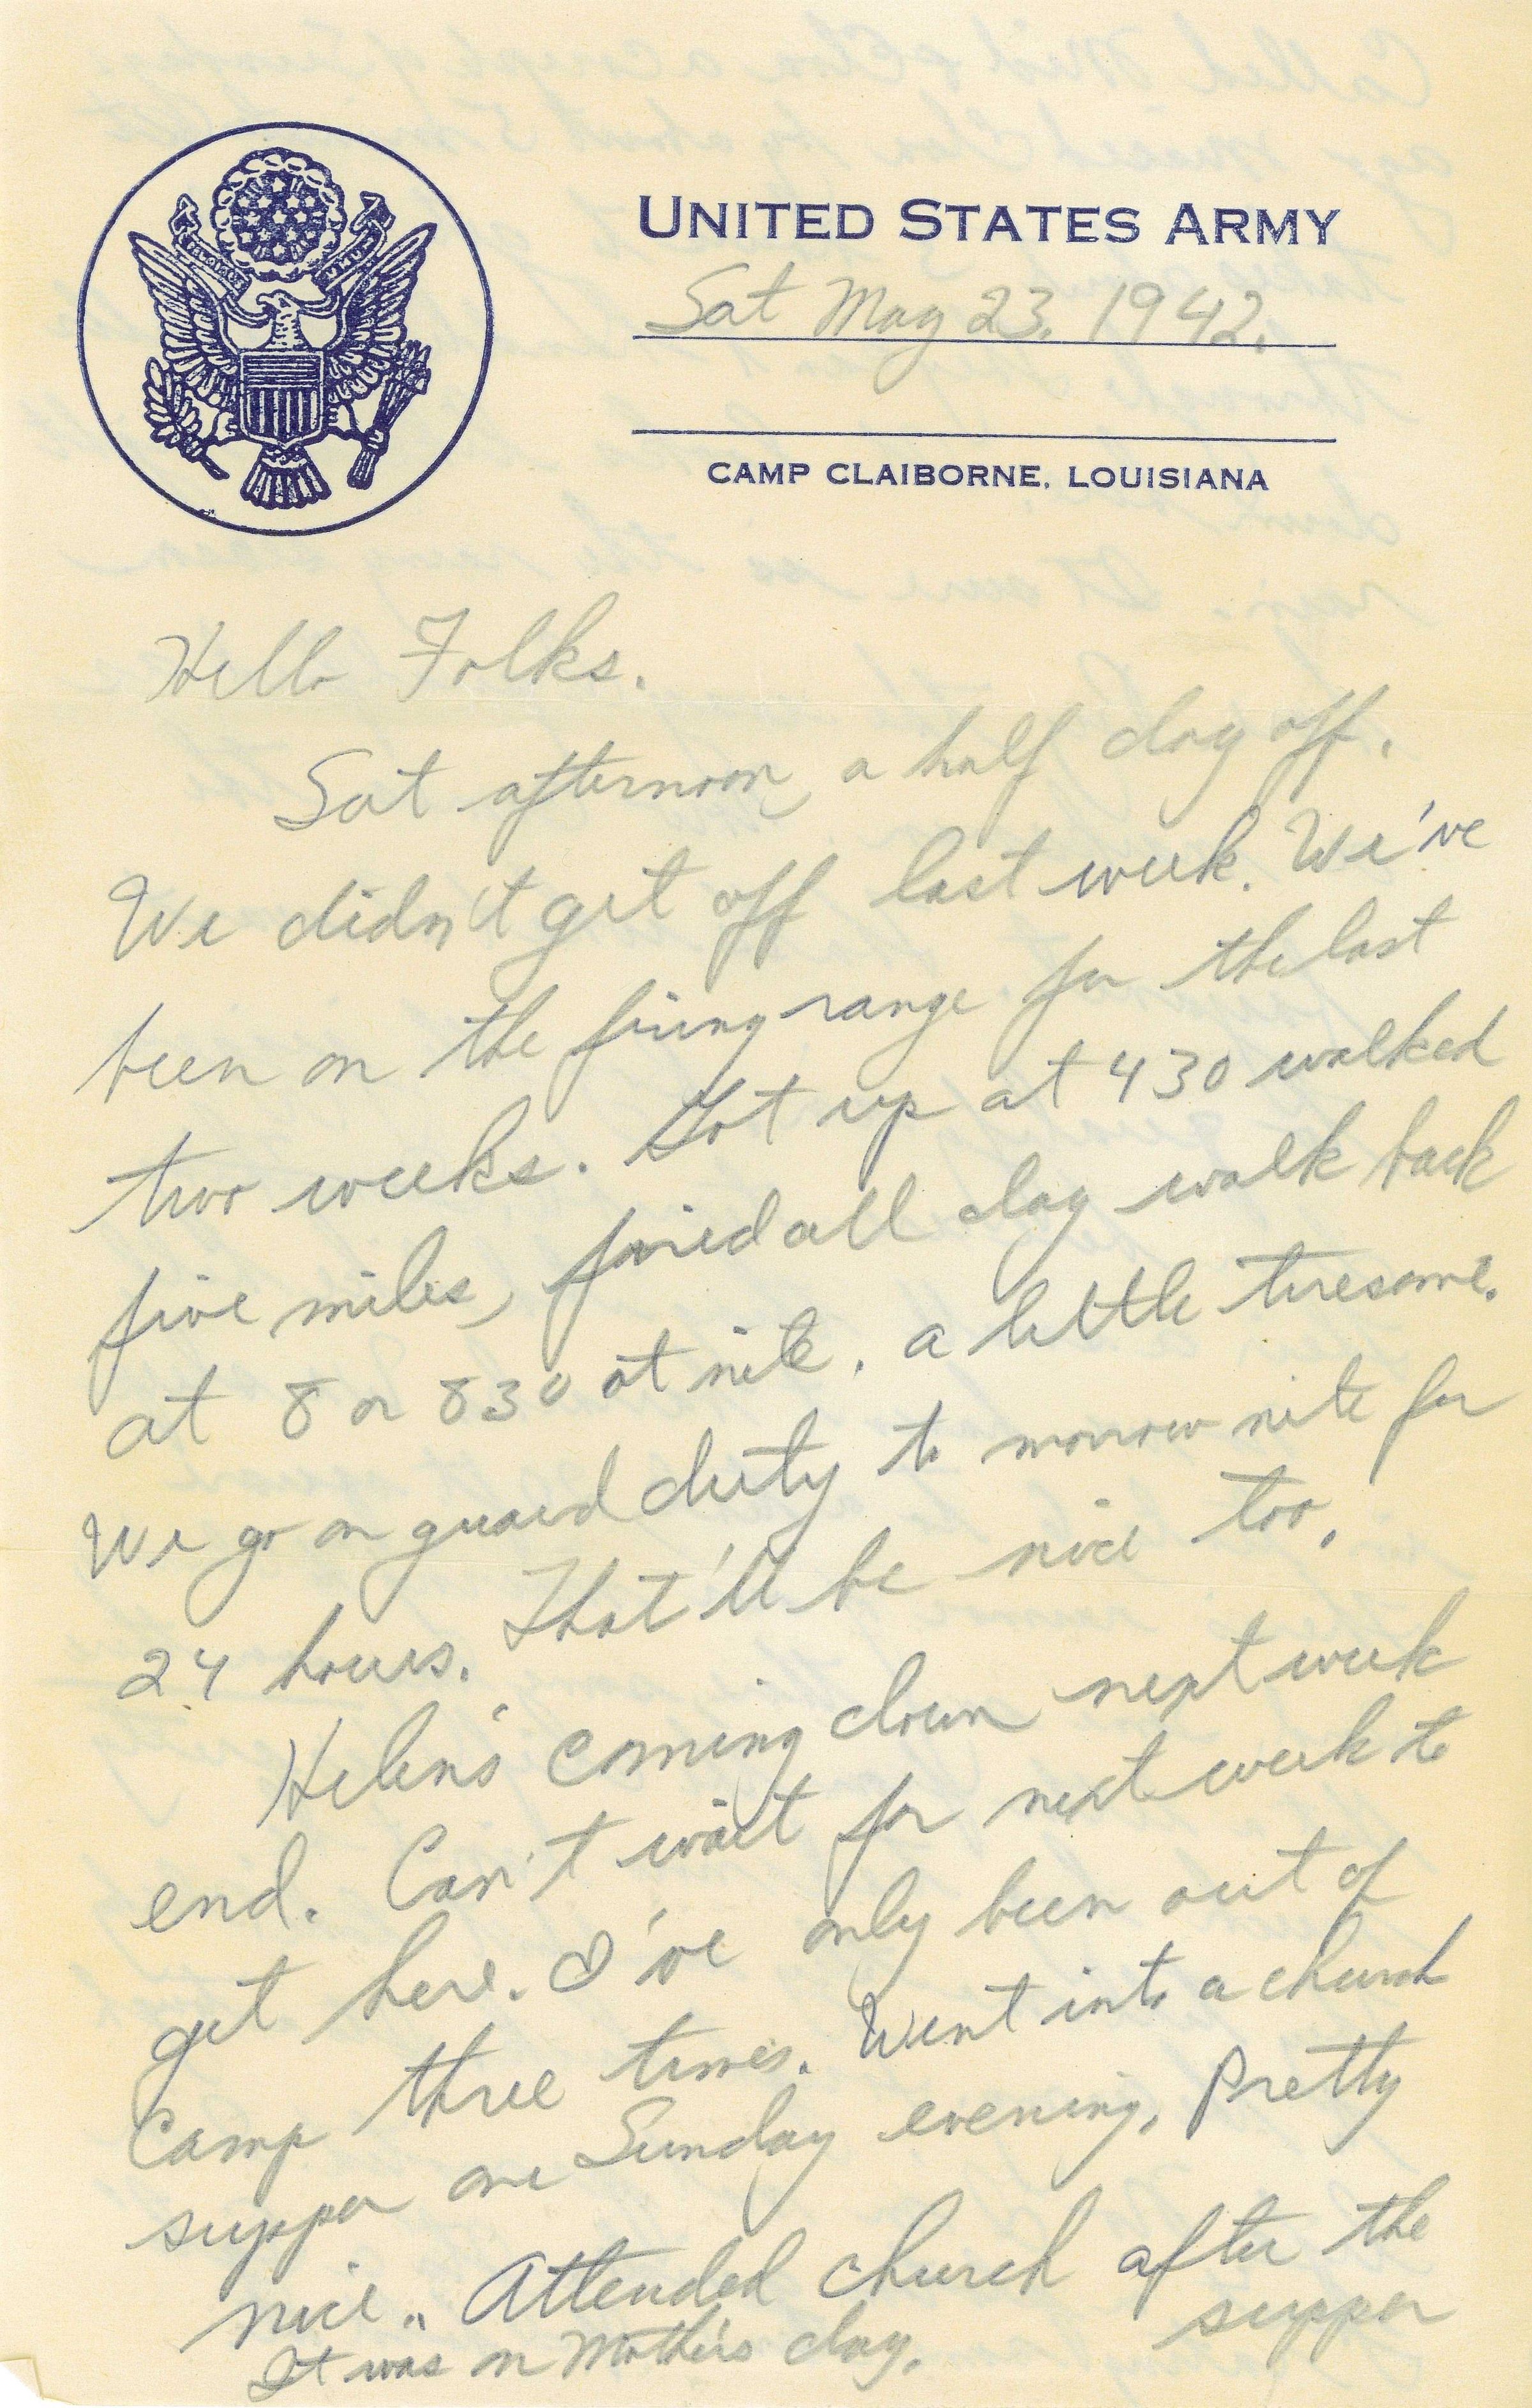 UNITED STATES ARMY
Sat May 23. 1942.
CAMP CLAIBORNE, LOUISIANA
Hello Folks.
Sat afternoon, a half day off.
We didn't get off last week. We've
been on the firing range for the last
two weeks. Got up at 430 walked
five miles, fired all day walk back
at 8 or 830 at nite. a little tiresome.
We go on guard duty to morrow nite for
24 hours. That'll be nice too.
Helen's coming down next week
end. Can't wait for next week to
get here. I've only been out of
Camp three times. Went into a church
supper one Sunday evening. Pretty
nice.. Attended church after the
supper
It was on Mothers day.